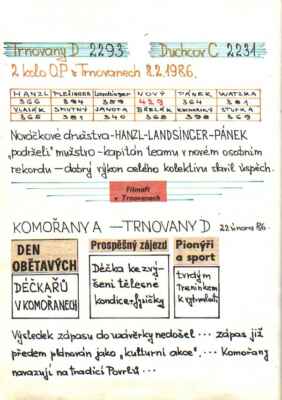 Trnovany D 2293 Duchcov C 2231
2 kolo OP v Trnovanech 8.2.1986.
HANZL PLEŠINGER Landsinger NOVÝ PÁNEK WATZKA
366 394 389 429 364 381
VLASÁK SMUTNÝ JANOTA
365 381 340 368 398 369
Nováčkové družstva-HANZL-LANDSINGER-PÁNEK
"podrželi" mužstvo-kapitán teamu v novém osobním
rekordu-dobrý výkon celého kolektivu slavil úspěch.
Filmaři
v Trnovanech
KOMOŘANY A - TRNOVANY D 22 února 86.
DEN
OBĚTAVÝCH
DÉČKAŘŮ
V KOMOŘANECH
Prospěšný zájezd
Déčka ke zvý-
šení tělesné
kondice+fyzičky
Pionýři
a sport
tvrdým
Treninkem
k vytrvalosti
Výsledek zápasu do uzávěrky nedošel... zápas již
předem plánován jako "kulturní akce"... Komořany
navazují na tradici Povrlů...